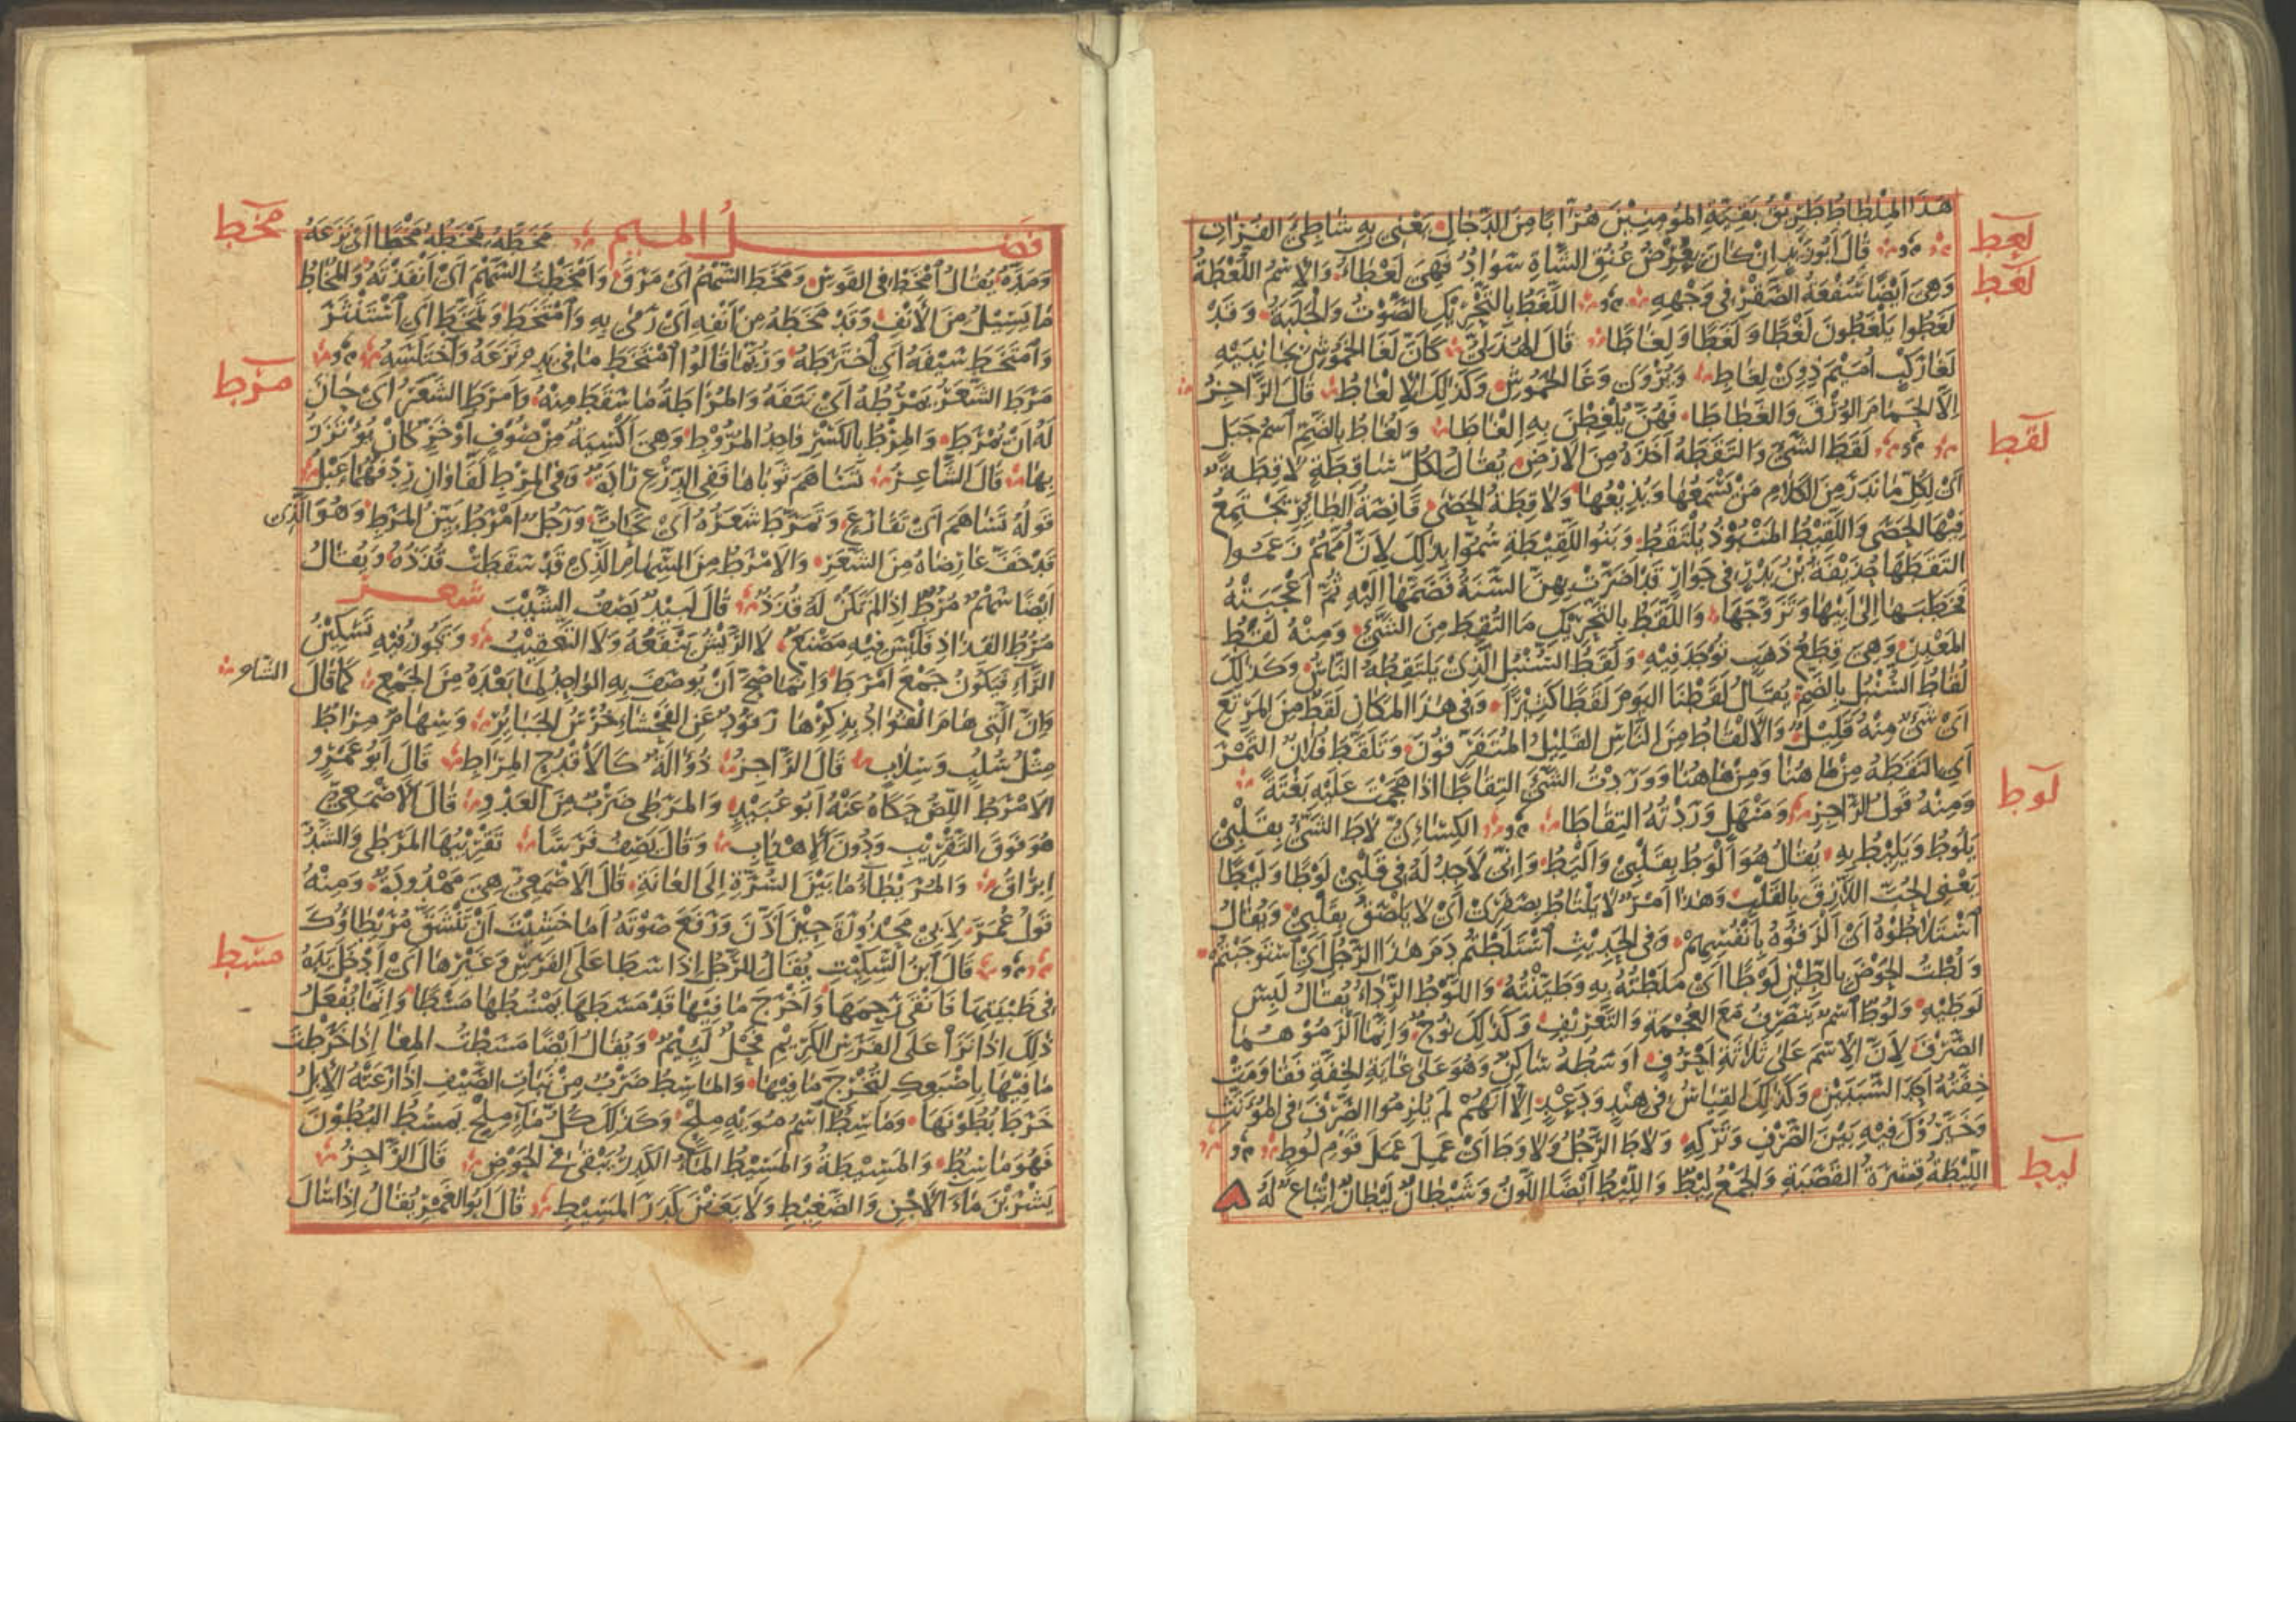 هَذَا المِلْطَاطُ طَرِيْقُ بَقِيَّةِ المُؤمِنِيْنَ هُرَّابًا مِنَ الدَّجَّالِ يَعْنِى بِهِ شَاطِئَ الفُرَاتِ
لعط
قَالَ أَبُو زَيْدٍ اِنْ كَانَ بِعُرْضِ عُنُقِ الشَّاةِ سَوَادٌ فَهِىَ لَعْطَاءُ وَالاِسْمُ اللُّعْطَةُ
لغط
وَهِىَ اَيْضًا سُفْعَةُ الصَّقْرِ فِى وَجْهِهِ اللَّغَطُ بِالتَّحْرِيْكِ الصَّوْتُ وَالْجَلَبَةُ وَقَدْ
لَغَطُوا يَلْغَطُونَ لَغْطًا وَلَغَطًا وَلِغَاطًا قَالَ الهُذَلِىُّ كَاَنَّ لَغَا الخَمُوْشِ بِجَانِبَيْهِ
لَغَا رَكْبٍ اُمَيْمَ ذَوِىْ لِغَاطِ وَيُرْوَى وَغَا الخَمُوْشِ وَكَذَلِكَ الاِلْغَاطُ قَالَ الرَّاجِزُ
اِلَّا الحَمَامَ الوُرْقَ وَالغَطَاطَا فَهُنَّ يُلْغِطْنَ بِهِ اِلْغَاطَا وَلُغَاطُ بِالضَّمِّ اسْمُ جَبَلٍ
لقط
لَقَطَ الشَّىْءَ وَالتَقَطَهُ اَخَذَهُ مِنَ الاَرْضِ يُقَالُ لِكُلِّ سَاقِطَةٍ لَاقِطَةٌ
اَىْ لِكُلِّ مَا نَدَرَ مِنَ الكَلَامِ مَنْ يَسْمَعُهَا وَيُذِيْعُهَا وَلَاقِطَةُ الحَصَى قَانِصَةُ الطَّائِرِ يَجْتَمِعُ
فِيْهَا الحَصَى وَاللَّقِيْطُ المَنْبُوْذُ يُلْتَقَطُ وَبَنُوا اللَّقِيْطَةِ سُمُّوا بِذَلِكَ لِاَنَّ اُمَّهُمْ زَعَمُوا
التَقَطَهَا حُذَيْفَةُ بْنُ بَدْرٍ فِى جَوَارٍ قَدْ اَضَرَّتْ بِهِنَّ السَّنَةُ فَضَمَّهَا اِلَيْهِ ثُمَّ اَعْجَبَتْهُ
فَخَطَبَهَا اِلَى اَبِيْهَا وَتَزَوَّجَهَا وَاللَّقَطُ بِالتَّحْرِيْكِ مَا التُقِطَ مِنَ الشَّىْءِ وَمِنْهُ لَقَطُ
المَعْدِنِ وَهِىَ قِطَعُ ذَهَبٍ تُوْجَدُ فِيْهِ وَلَقَطُ السُّنْبُلِ الَّذِىْ يَلْتَقِطُهُ النَّاسُ وَكَذَلِكَ
لُقَاطُ السُّنْبُلِ بِالضَّمِّ يُقَالُ لَقَطْنَا اليَوْمَ لَقَطًا كَثِيْرًا وَفِى هَذَا المَكَانِ لَقَطٌ مِنَ المَرْتَعِ
اَىْ شَىْءٌ مِنْهُ قَلِيْلٌ وَالاَلْقَاطُ مِنَ النَّاسِ القَلِيْلُ المُتَفَرِّقُوْنَ وَتَلَقَّطَ فُلَانٌ التَّمْرَ
اَىِ التَقَطَهُ مِنْ هَا هُنَا وَمِنْ هَا هُنَا وَوَرَدْتُ الشَّىْءَ التِقَاطًا اِذَا هَجَمْتَ عَلَيْهِ بَغْتَةً
لوط
وَمِنْهُ قَوْلُ الرَّاجِزِ وَمَنْهَلٍ وَرَدْتُهُ التِقَاطَا الكِسَائِىُّ لَاطَ الشَّىْءُ بِقَلْبِىْ
يَلُوطُ وَيَلِيْطُ بِهِ يُقَالُ هُوَ اَلْوَطُ بِقَلْبِىْ وَاَلْيَطُ وَاِنِّى لَاَجِدُ لَهُ فِى قَلْبِىْ لَوْطًا وَلَيْطًا
يَعْنِى الحُبَّ اللَّازِقَ بِالقَلْبِ وَهَذَا اَمْرٌ لَا يَلْتَاطُ بِصَفَرِىْ اَىْ لَا يَلْصَقُ بِقَلْبِىْ وَيُقَالُ
اسْتَلَاطُوْهُ اَىْ اَلْزَقُوْهُ بِاَنْفُسِهِمْ وَفِى الحَدِيْثِ اسْتَلَطْتُمْ دَمَ هَذَا الرَّجُلِ اَىْ اسْتَوْجَبْتُمْ
وَلُطْتُ الحَوْضَ بِالطِّيْنِ لَوْطًا اَىْ مَلَطْتُهُ بِهِ وَطَيَّنْتُهُ وَاللَّوْطُ الرِّدَاءُ يُقَالُ لَبِسَ
لَوْطَيْهِ وَلُوْطٌ اسْمٌ يَنْصَرِفُ مَعَ العُجْمَةِ وَالتَّعْرِيْفِ وَكَذَلِكَ نُوْحٌ وَاِنَّمَا اَلْزَمُوْهُمَا
الصَّرْفَ لِاَنَّ الاِسْمَ عَلَى ثَلَاثَةِ اَحْرُفٍ اَوْسَطُهُ سَاكِنٌ وَهُوَ عَلَى غَايَةِ الخِفَّةِ فَقَاوَمَتْ
خِفَّتُهُ اَحَدَ السَّبَبَيْنِ وَكَذَلِكَ القِيَاسُ فِى هِنْدٍ وَدَعْدٍ اِلَّا اَنَّهُمْ لَمْ يُلْزِمُوا الصَّرْفَ فِى المُؤَنَّثِ
وَخَيَّرُوْكَ فِيْهِ بَيْنَ الصَّرْفِ وَتَرْكِهِ وَلَاطَ الرَّجُلُ وَلَاوَطَ اَىْ عَمِلَ عَمَلَ قَوْمِ لُوطٍ
ليط
اللِّيْطَةُ قِشْرَةُ القَصَبَةِ وَالجَمْعُ لِيْطٌ وَاللِّيْطُ اَيْضًا اللَّوْنُ وَشَيْطَانٌ لَيْطَانٌ اِتْبَاعٌ لَهُ
فصل الميم
مخط
مَخَطَهُ يَمْخَطُهُ مَخْطًا اَىْ نَزَعَهُ
وَمَدَّهُ يُقَالُ امْخَطْ فِى القَوْسِ وَمَخَطَ السَّهْمُ اَىْ مَرَقَ وَاَمْخَطْتُ السَّهْمَ اَىْ اَنْفَذْتُهُ وَالمُخَاطُ
مَا يَسِيْلُ مِنَ الاَنْفِ وَقَدْ مَخَطَهُ مِنْ اَنْفِهِ اَىْ رَمَى بِهِ وَامْتَخَطَ وَتَمَخَّطَ اَىِ اسْتَنْثَرَ
وَامْتَخَطَ سَيْفَهُ اَىِ اخْتَرَطَهُ وَرُبَّمَا قَالُوا امْتَخَطَ مَا فِى يَدِهِ نَزَعَهُ وَاخْتَلَسَهُ
مرط
مَرَطَ الشَّعَرَ يَمْرُطُهُ اَىْ نَتَفَهُ وَالمُرَاطَةُ مَا سَقَطَ مِنْهُ وَاَمْرَطَ الشَّعَرُ اَىْ حَانَ
لَهُ اَنْ يُمْرَطَ وَالمِرْطُ بِالكَسْرِ وَاحِدُ المُرُوْطِ وَهِىَ اَكْسِيَةٌ مِنْ صُوْفٍ اَوْ خَزٍّ كَانَ يُؤْتَزَرُ
بِهَا قَالَ الشَّاعِرُ تَسَاهَمَ ثَوْبَاهَا فَفِى الدِّرْعِ رَادَةٌ وَفِى المِرْطِ لَفَّاوَانِ رِدْفُهُمَا عَبْلُ
قَوْلُهُ تَسَاهَمَ اَىْ تَقَارَعَ وَتَمَرَّطَ شَعَرُهُ اَىْ تَحَاتَّ وَرَجُلٌ اَمْرَطُ بَيِّنُ المَرَطِ وَهُوَ الَّذِى
قَدْ خَفَّ عَارِضَاهُ مِنَ الشَّعَرِ وَالاَمْرَطُ مِنَ السِّهَامِ الَّذِى قَدْ سَقَطَتْ قُذَذُهُ وَيُقَالُ
اَيْضًا سَهْمٌ مُرُطٌ اِذَا لَمْ تَكُنْ لَهُ قُذَذٌ قَالَ لَبِيْدٌ يَصِفُ الشَّيْبَ شعر
مُرُطُ القِذَاذِ فَلَيْسَ فِيْهِ مَصْنَعٌ لَا الرِّيْشُ يَنْفَعُهُ وَلَا التَّعْقِيْبُ وَيَكُوْنُ فِيْهِ تَسْكِيْنُ
الرَّاءِ فَيَكُوْنُ جَمْعَ اَمْرَطَ وَاِنَّمَا صَحَّ اَنْ يُوْصَفَ بِهِ الوَاحِدُ لِمَا بَعْدَهُ مِنَ الجَمْعِ كَمَا قَالَ الشاعر
وَاِنَّ الَّتِى هَامَ الفُؤَادُ بِذِكْرِهَا رَقُوْدٌ عَنِ الفَحْشَاءِ خُرْسُ الجَبَائِرِ وَسِهَامٌ مِرَاطٌ
مِثْلُ سُلُبٍ وَسِلَابٍ قَالَ الرَّاجِزُ ذُؤَالَةٌ كَالاَقْدُحِ المِرَاطِ قَالَ اَبُو عَمْرٍو
الاَمْرَطُ اللِّصُّ حَكَاهُ عَنْهُ اَبُو عُبَيْدٍ وَالمَرَطَى ضَرْبٌ مِنَ العَدْوِ قَالَ الاَصْمَعِىُّ
هُوَ فَوْقَ التَّقْرِيْبِ وَدُوْنَ الاِهْذَابِ وَقَالَ يَصِفُ فَرَسًا تَقْرِيْبُهَا المَرَطَى وَالشَّدُّ
اِبْرَاقُ وَالمُرَيْطَاءُ مَا بَيْنَ السُّرَّةِ اِلَى العَانَةِ قَالَ الاَصْمَعِىُّ هِىَ مَمْدُودَةٌ وَمِنْهُ
قَوْلُ عُمَرَ لِاَبِى مَحْذُوْرَةَ حِيْنَ اَذَّنَ وَرَفَعَ صَوْتَهُ اَمَا خَشِيْتَ اَنْ تَنْشَقَّ مُرَيْطَاؤُكَ
مسط
قَالَ ابْنُ السِّكِّيْتِ يُقَالُ لِلرَّجُلِ اِذَا سَطَا عَلَى الفَرَسِ وَغَيْرِهَا اَىْ اَدْخَلَ يَدَهُ
فِى ظَبْيَتِهَا فَاَنْقَى رَحِمَهَا وَاَخْرَجَ مَا فِيْهَا قَدْ مَسَطَهَا يَمْسُطُهَا مَسْطًا وَاِنَّمَا يُفْعَلُ
ذَلِكَ اِذَا نَزَا عَلَى الفَرَسِ الكَرِيْمِ فَحْلٌ لَئِيْمٌ وَيُقَالُ اَيْضًا مَسَطْتُ المِعَا اِذَا خَرَطْتَ
مَا فِيْهَا بِاِصْبَعِكَ لِتُخْرِجَ مَا فِيْهَا وَالمَاسِطُ ضَرْبٌ مِنْ نَبَاتِ الصَّيْفِ اِذَا رَعَتْهُ الاِبِلُ
خَرَطَ بُطُوْنَهَا وَمَاسِطٌ اسْمُ مُوَيْهٍ مِلْحٍ وَكَذَلِكَ كُلُّ مَاءٍ مِلْحٍ يَمْسُطُ البُطُوْنَ
فَهُوَ مَاسِطٌ وَالمَسِيْطَةُ وَالمَسِيْطُ المَاءُ الكَدِرُ يَبْقَى فِى الحَوْضِ قَالَ الرَّاجِزُ
يَشْرَبْنَ مَاءَ الاَجْنِ وَالضَّغِيْطِ وَلَا يَعَفْنَ كَدَرَ المَسِيْطِ قَالَ اَبُو الغَمْرِ يُقَالُ اِذَا سَالَ